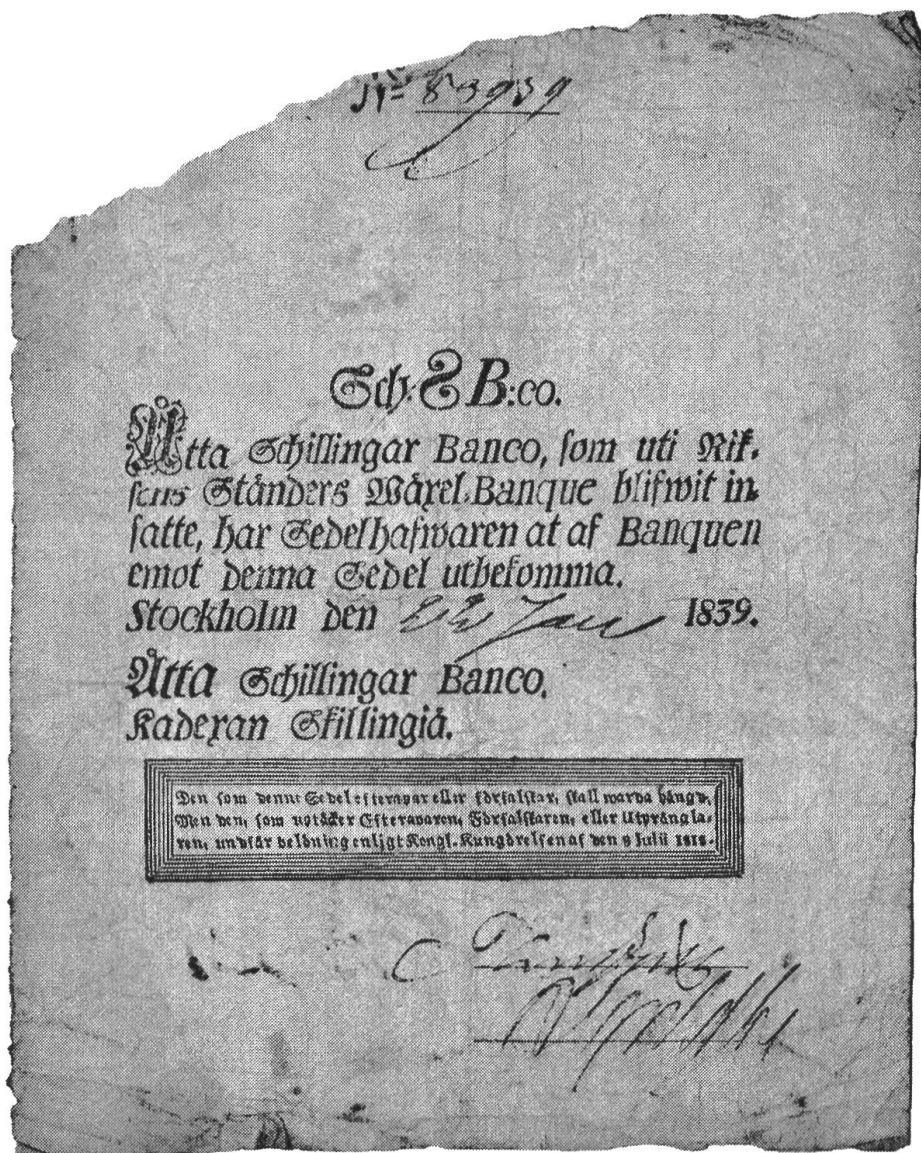 Nº 83939
Sch. 8 B:co.
Åtta Schillingar Banco, som uti Rik-
sens Ständers Wäxel-Banque blifwit in-
satte, har Sedelhafwaren at af Banquen
emot denna Sedel utbekomma.
Stockholm den Jan 1839.
Åtta Schillingar Banco.
Kadexan Skillingiä.
Den som denne Sedel efterapar eller förfalskar, skall warda hängd;
Men den, som uptäcker Efteraparen, Förfalskaren, eller Utprångla-
ren, undfår belöning enligt Kongl. Kungörelsen af den 9 Julii 1818.